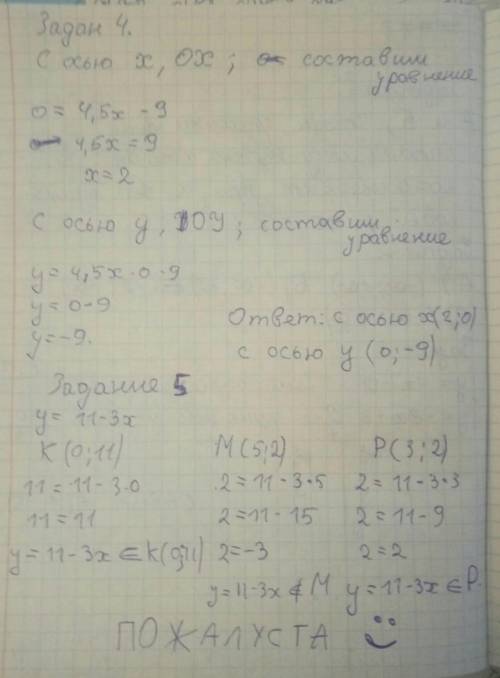 Задан 4.
С осью x, OX; составим
уравнение
0 = 4,5x - 9
4,5x = 9
x = 2
С осью y, OY; составим
уравнение
y = 4,5x · 0 - 9
y = 0 - 9
y = -9.
Ответ: с осью x(2;0)
с осью y (0;-9)
Задание 5
y = 11 - 3x
K (0;11) M (5;2) P (3;2)
11 = 11 - 3·0 2 = 11 - 3·5 2 = 11 - 3·3
11 = 11 2 = 11 - 15 2 = 11 - 9
y = 11 - 3x ∈ K(0;11) 2 = -3 2 = 2
y = 11 - 3x ∉ M y = 11 - 3x ∈ P.
ПОЖАЛУСТА